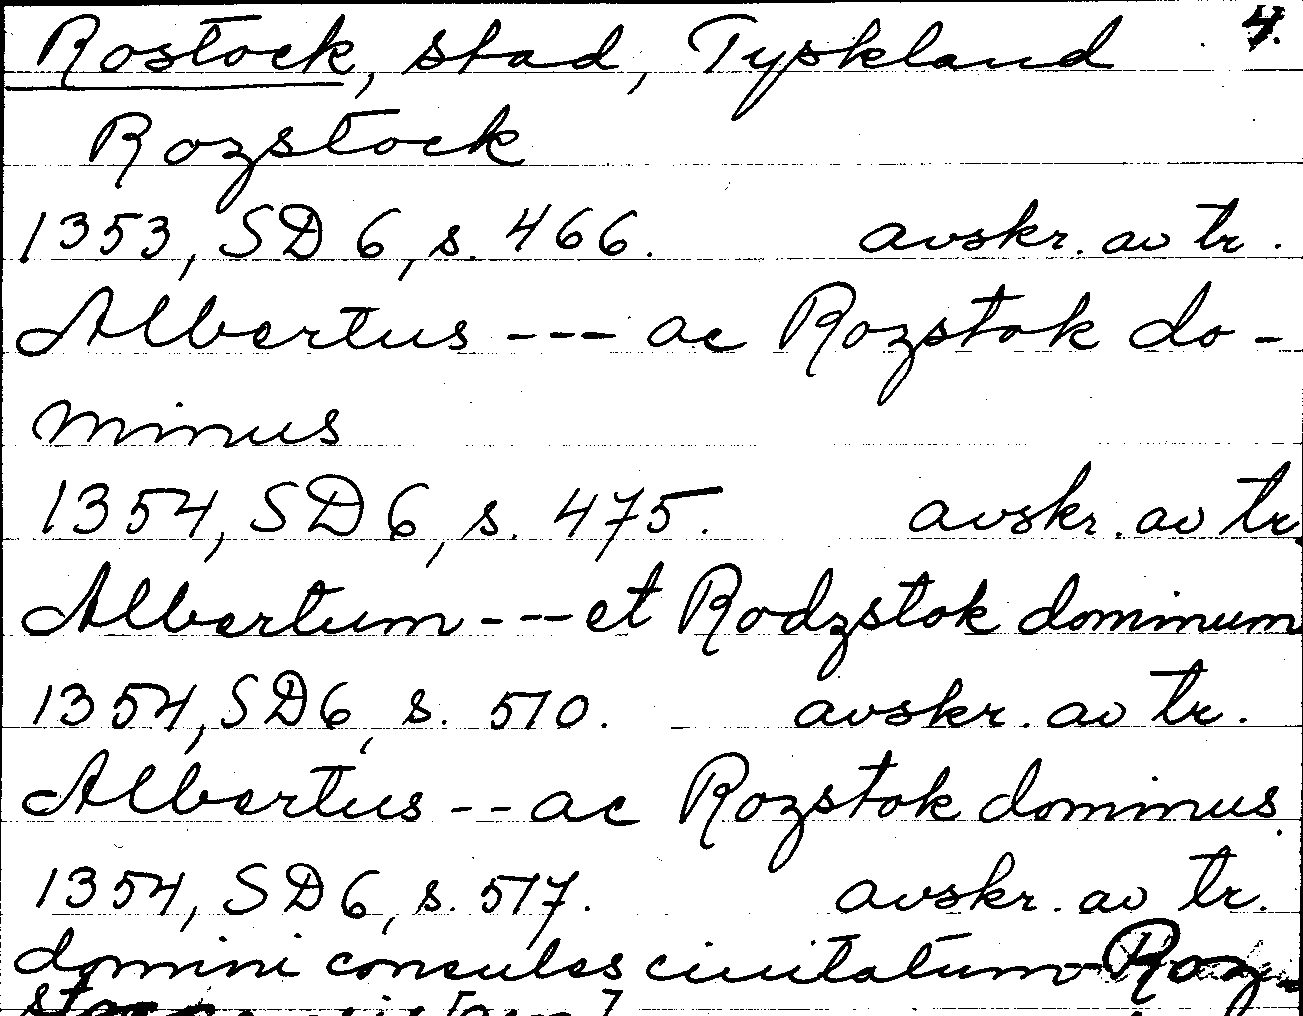 Rostock, stad, Tyskland 4.
Rozstock
1353, SD 6, s. 466. avskr. av tr.
Albertus --- ac Rozstok do-
minus
1354, SD 6, s. 475. avskr. av tr.
Albertum --- et Rodzstok dominum
1354, SD 6, s. 510. avskr. av tr.
Albertus -- ac Rozstok dominus
1354, SD 6, s. 517. avskr. av tr.
domini consules ciuitatum - Roz-